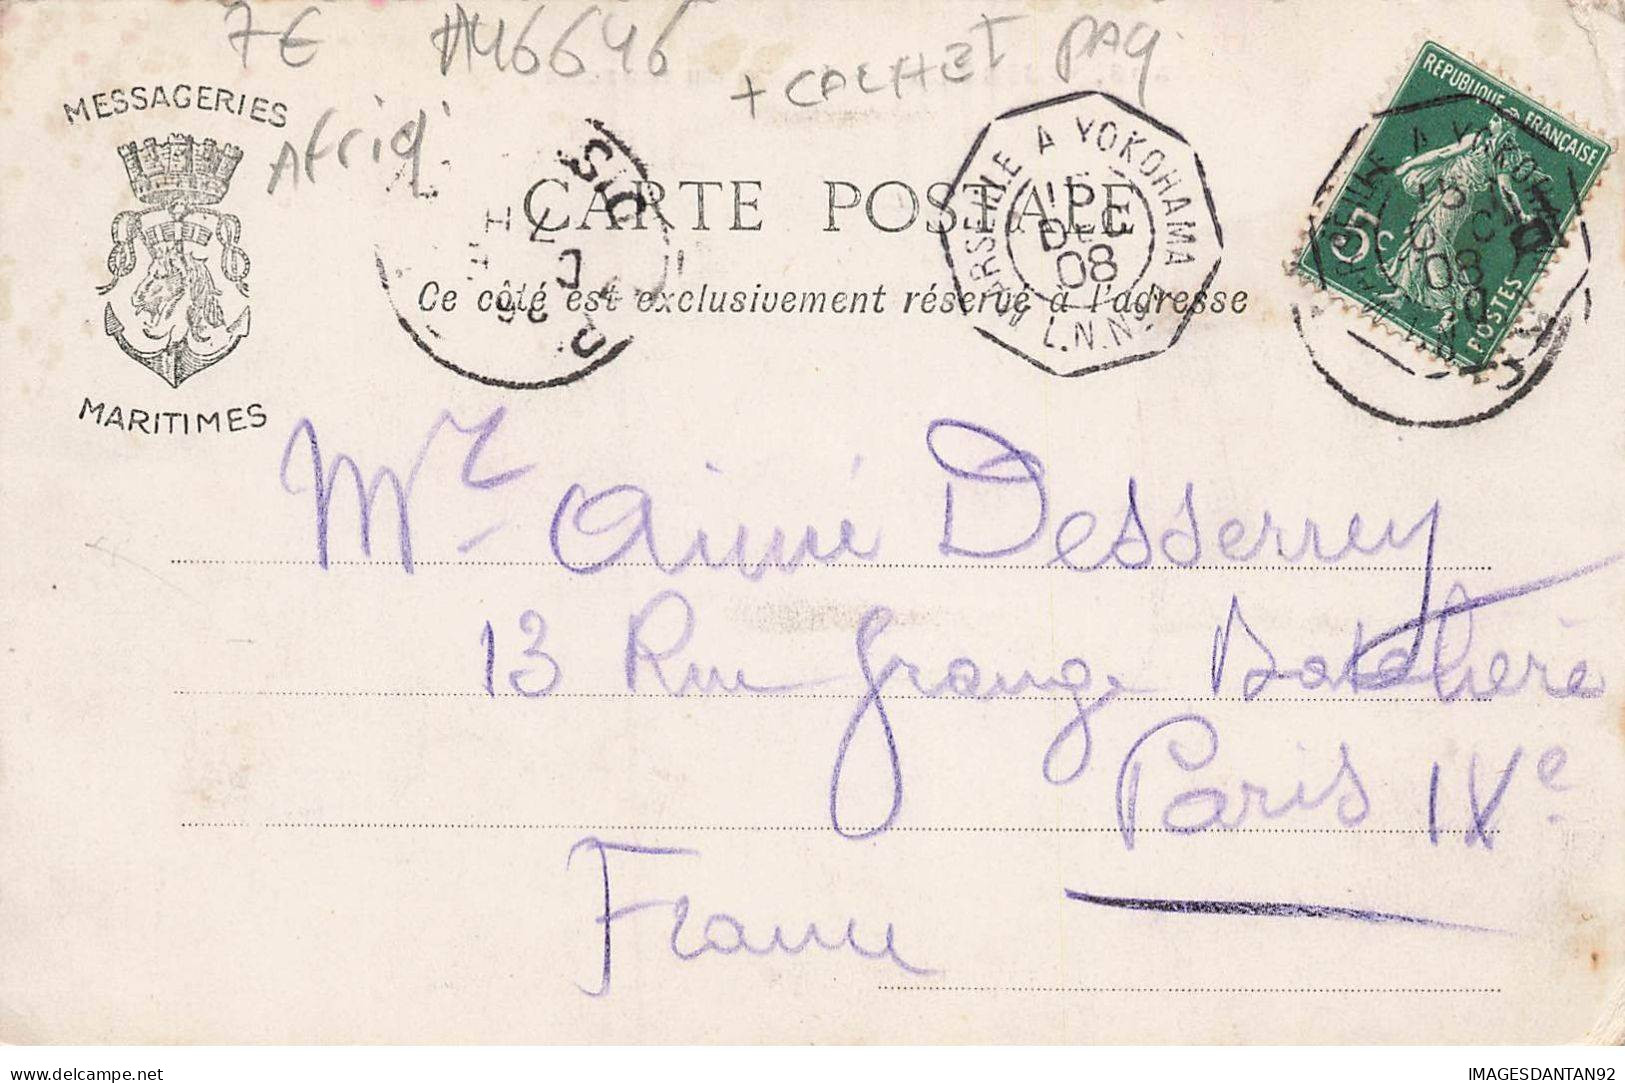 7€ #46646 + CACHET PAQ
Afriq.
MESSAGERIES
MARITIMES
CARTE POSTALE
Ce côté est exclusivement réservé à l'adresse
MARSEILLE A YOKOHAMA
DEC
08
L.N. Nº
REPUBLIQUE FRANÇAISE
5c
POSTES
Mr Aimé Desserrey
13 Rue Grange Batelière
Paris IXe
France
delcampe.net
IMAGESDANTAN92